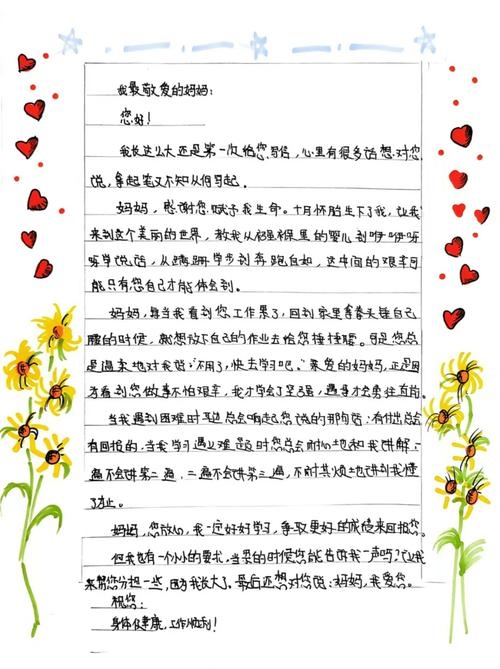 我最敬爱的妈妈：
您好！
我长这么大还是第一次给您写信，心里有很多话想对您
说，拿起笔又不知从何写起。
妈妈，感谢您赋予我生命。十月怀胎生下了我，让我
来到这个美丽的世界，教我从襁褓里的婴儿到咿咿呀
呀学说话，从蹒跚学步到奔跑自如，这中间的艰辛可
能只有您自己才能体会到。
妈妈，每当我看到您工作累了，回到家里拿拳头锤自己
腰的时候，就想放下自己的作业去给您捶捶腰。可是您总
是温柔地对我说："不用了，快去学习吧。"亲爱的妈妈，正是因
为看到您做事不怕艰辛，我才学会了坚强，遇事才会勇往直前。
当我遇到困难时耳边总会响起您说的那句话：有付出总会
有回报的，当我学习遇上难题时您总会耐心地和我讲解，一
遍不会讲第二遍，二遍不会讲第三遍，不耐其烦地讲到我懂
了才止。
妈妈，您放心，我一定好好学习，争取更好的成绩来回报您。
但我也有一个小小的要求，当累的时候您能告诉我一声吗？让我
来帮您分担一些，因为我长大了。最后还想对您说：妈妈，我爱您。
祝您：
身体健康，工作顺利！